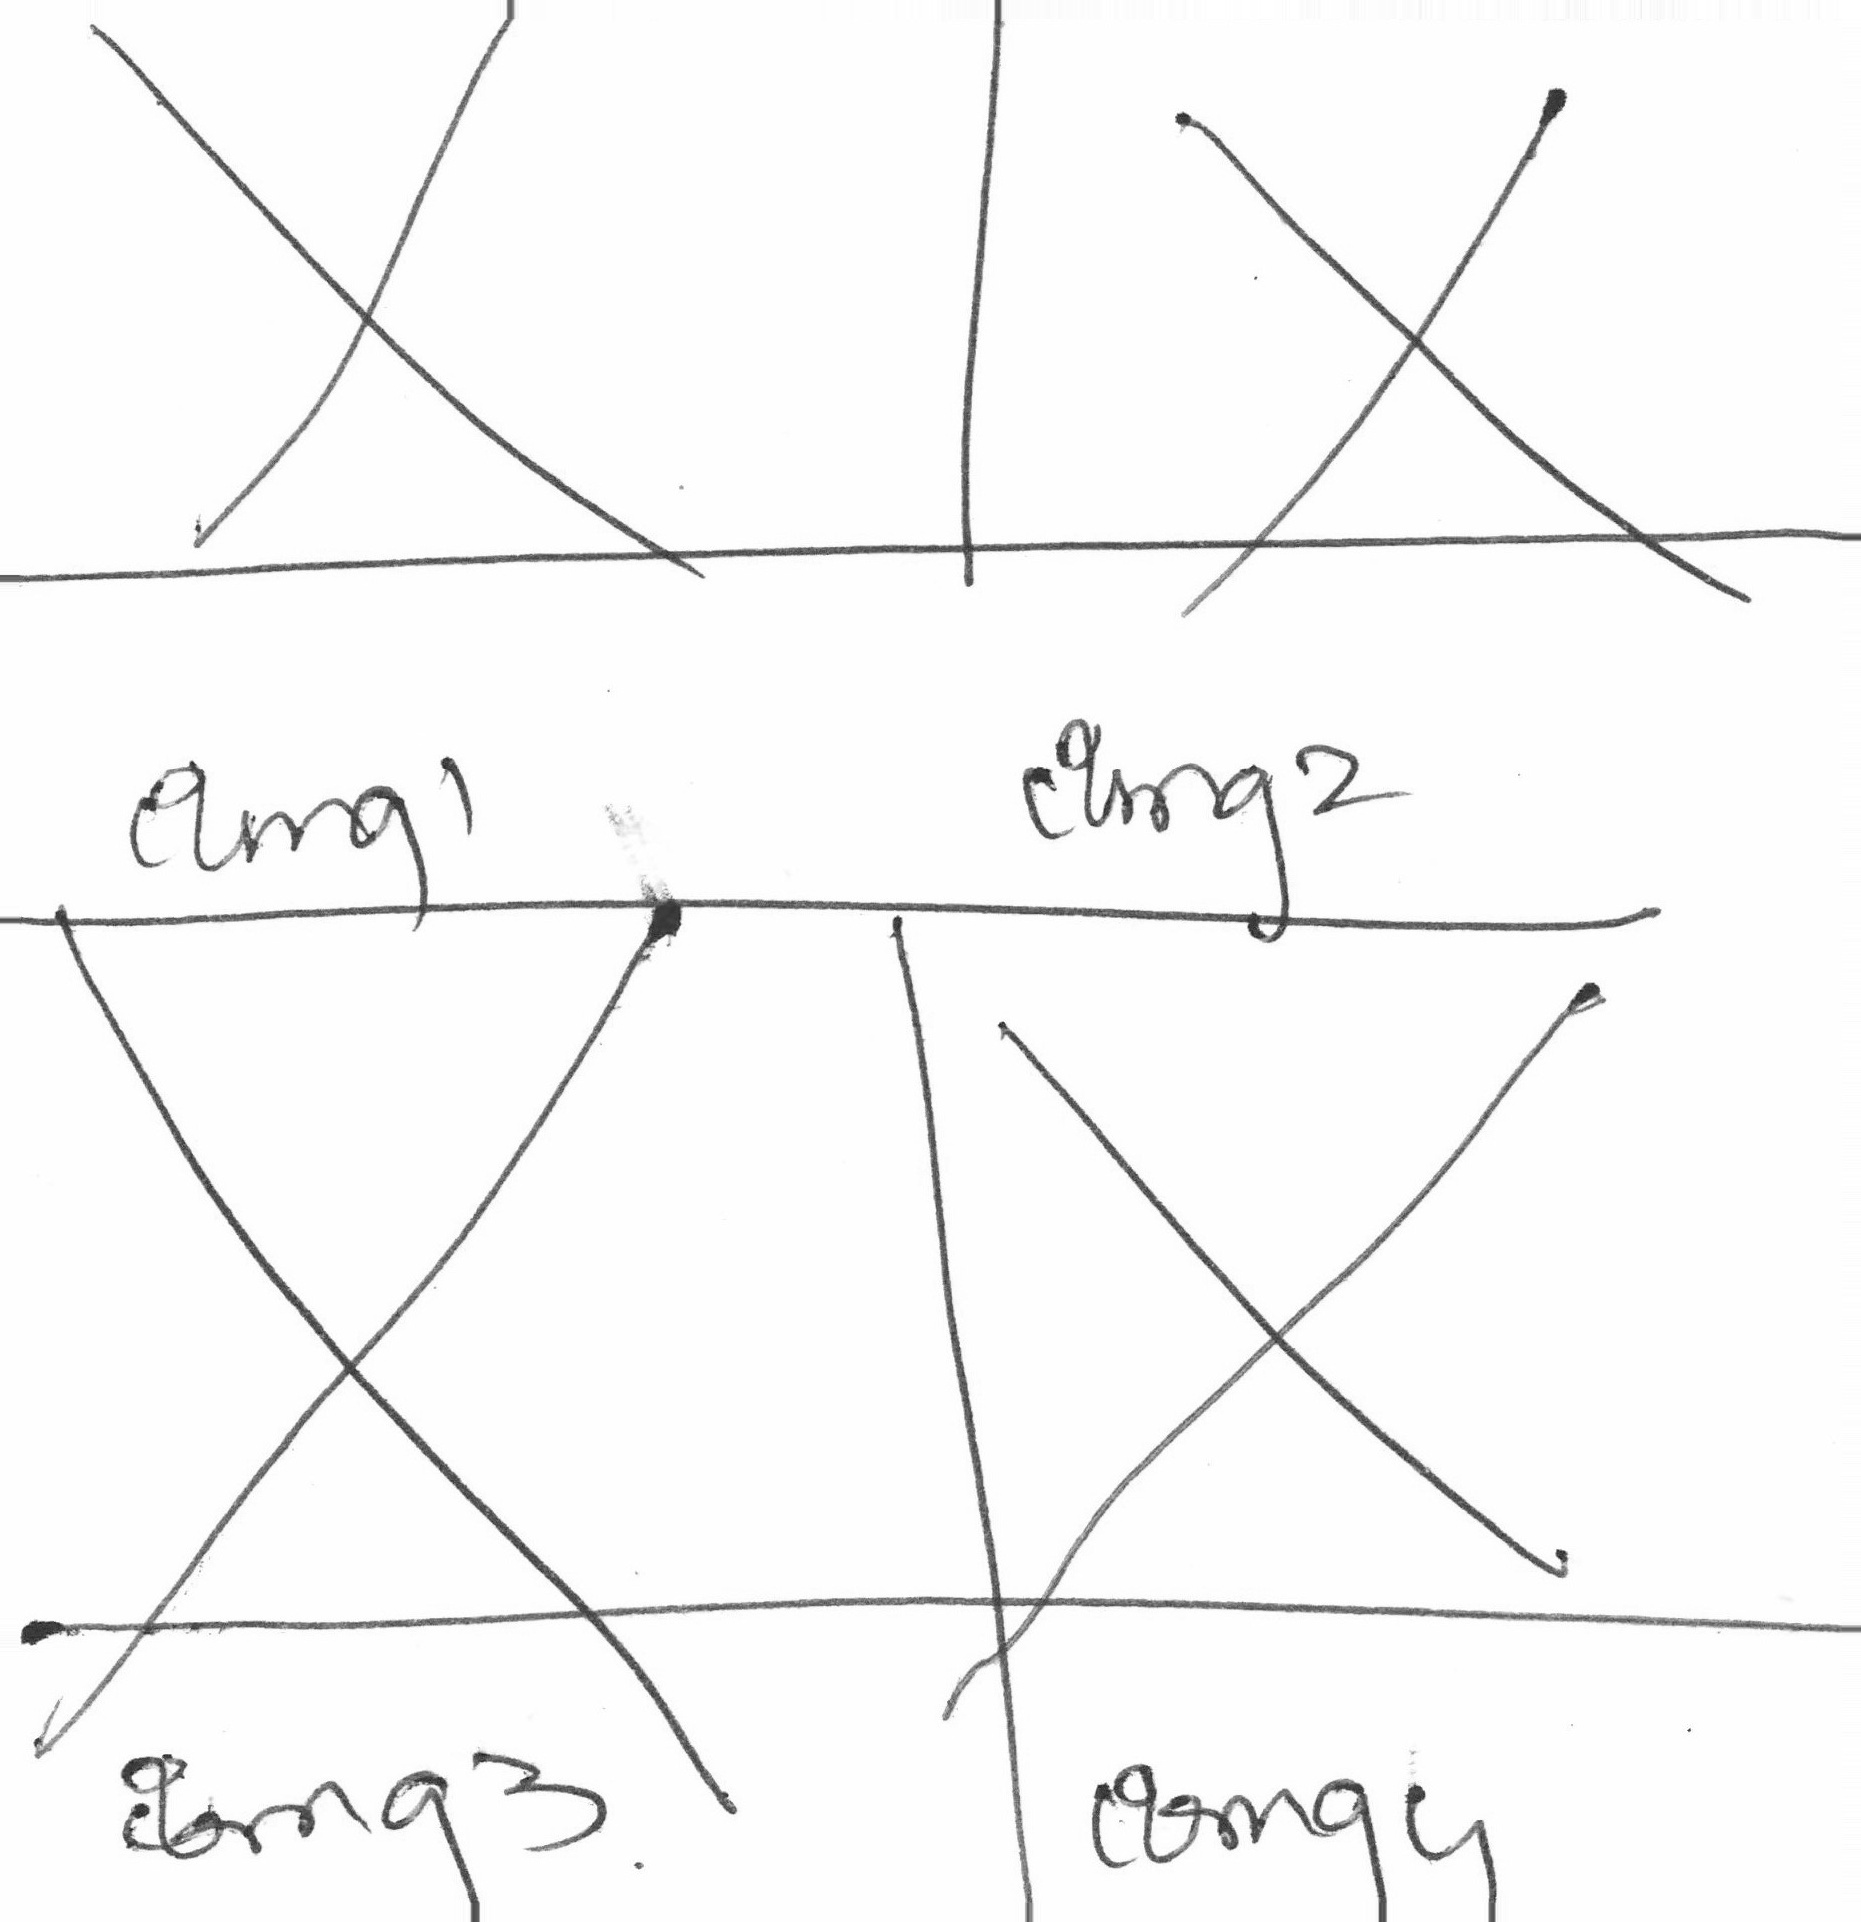 Img 1 Img 2
Img 3 Img 4